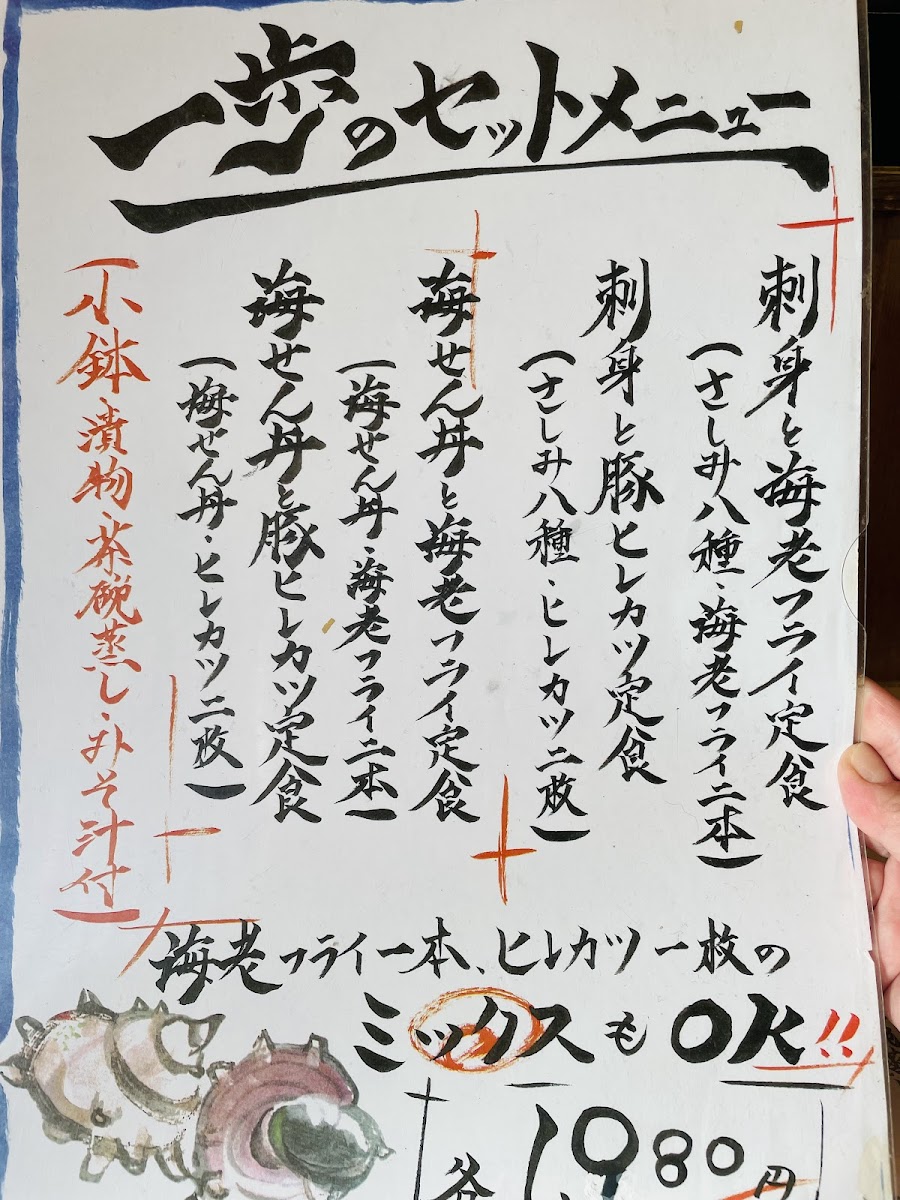 一歩のセットメニュー
刺身と海老フライ定食
(さしみ八種・海老フライ二本)
刺身と豚ヒレカツ定食
(さしみ八種・ヒレカツ二枚)
海せん丼と海老フライ定食
(海せん丼・海老フライ二本)
海せん丼と豚ヒレカツ定食
(海せん丼・ヒレカツ二枚)
(小鉢・漬物・茶碗蒸し・みそ汁付)
海老フライ一本、ヒレカツ一枚の
ミックスもOK!!
各1980円